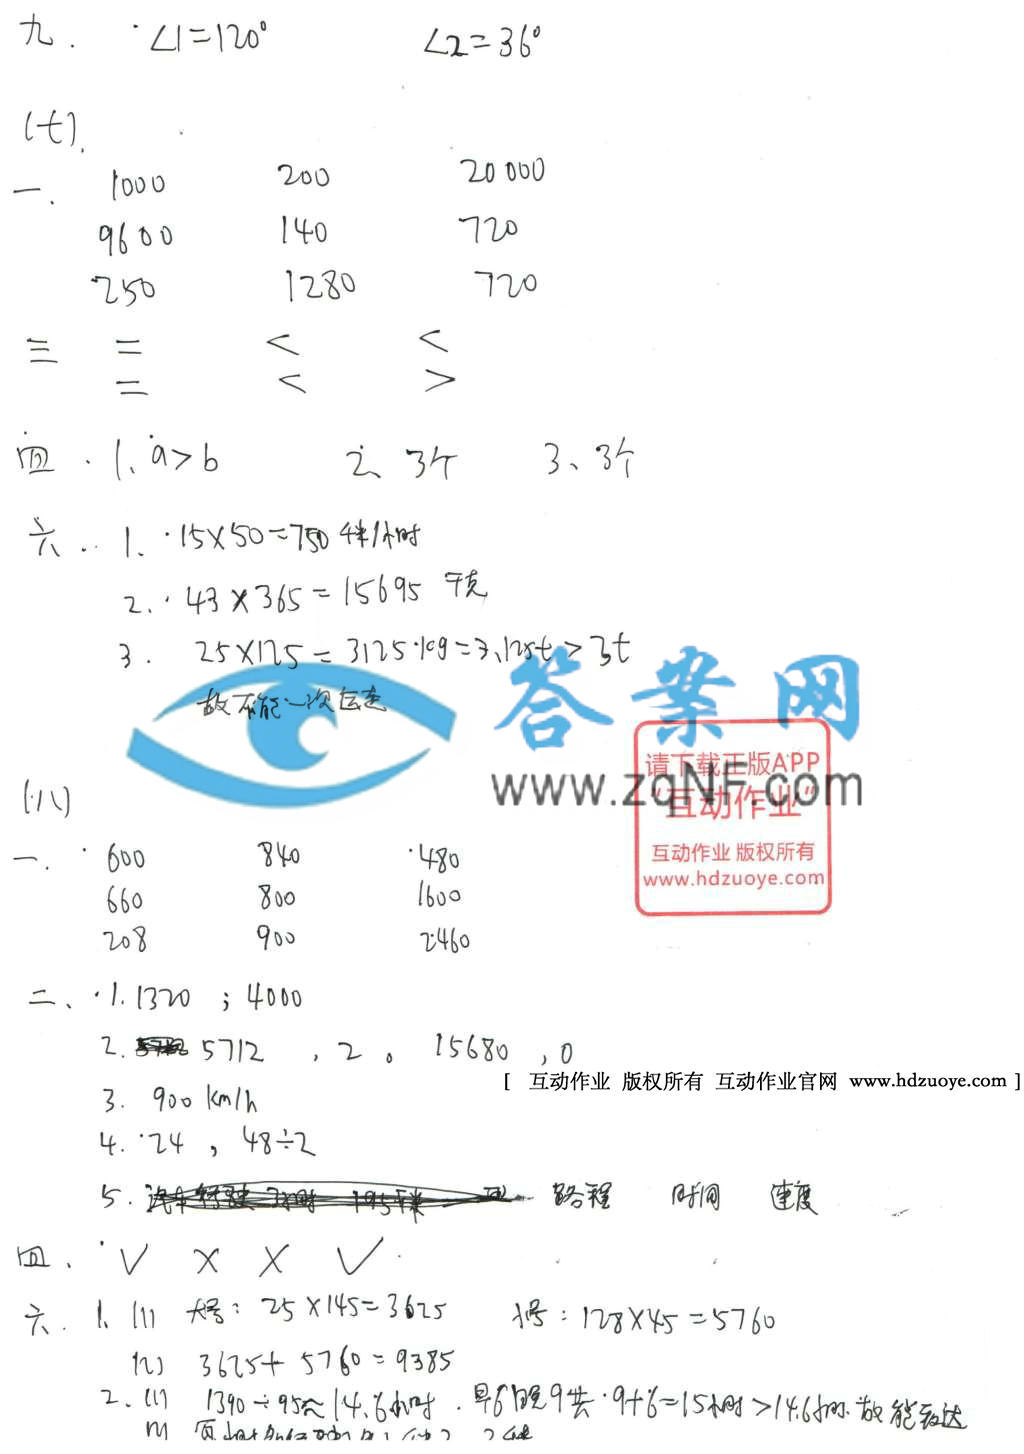 九. ∠1=120° ∠2=36°
(七).
一. 1000 200 20000
9600 140 720
250 1280 720
三 = < <
= < >
四. 1、a>b 2、3个 3、3个
六. 1、15×50=750 千米/小时
2. 43×365=15695 千克
3. 25×125=3125kg=3.125t>3t
故不能一次运走
答案网
www.zqNF.com
请下载正版APP
“互动作业”
互动作业 版权所有
www.hdzuoye.com
(八)
一. 600 840 480
660 800 1600
208 900 2460
二、1.1320 ; 4000
2. 5712 , 2。 15680 , 0
[ 互动作业 版权所有 互动作业官网 www.hdzuoye.com ]
3. 900 km/h
4. 24 , 48÷2
5. 路程 时间 速度
四、√ × × √
六. 1. (1) 大号: 25×145=3625 小号: 128×45=5760
(2) 3625+5760=9385
2. (1) 1390÷95≈14.6小时. 早6晚9共 9+6=15小时>14.6小时. 故能到达